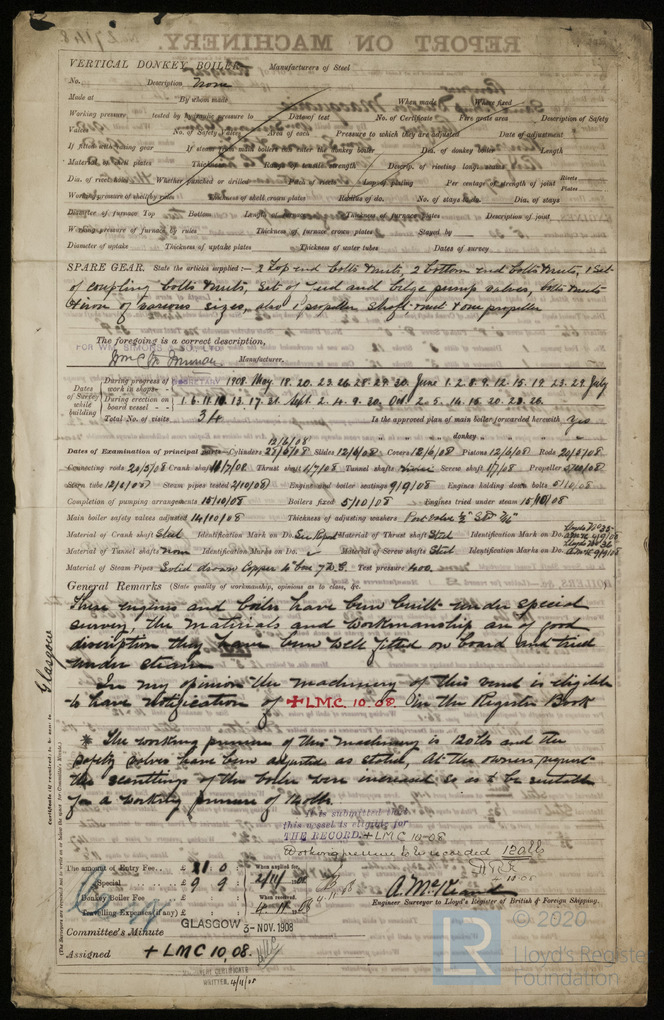 REPORT ON MACHINERY.
VERTICAL DONKEY BOILER Manufacturers of Steel
No. Description None
Made at By whom made When made Where fixed
Working pressure tested by hydraulic pressure to Date of test No. of Certificate Fire grate area Description of Safety
Valves No. of Safety Valves Area of each Pressure to which they are adjusted Date of adjustment
If fitted with easing gear If steam from main boilers can enter the donkey boiler Dia. of donkey boiler Length
Material of shell plates Thickness Range of tensile strength Descrip. of riveting long. seams
Dia. of rivet holes Whether punched or drilled Pitch of rivets Lap of plating Per centage of strength of joint Rivets Plates
Working pressure of shell by rules Thickness of shell crown plates Radius of do. No. of stays to do. Dia. of stays
Diameter of furnace Top Bottom Length of furnace Thickness of furnace plates Description of joint
Working pressure of furnace by rules Thickness of furnace crown plates Stayed by
Diameter of uptake Thickness of uptake plates Thickness of water tubes Dates of survey
SPARE GEAR. State the articles supplied :— 2 Top end bolts & nuts, 2 bottom end bolts & nuts, 1 Set
of coupling bolts & nuts, set of feed and bilge pump valves, bolts & nuts
& iron of various sizes, also 1 propeller shaft & nut & one propeller
The foregoing is a correct description,
Manufacturer.
SECRETARY
Dates of Survey while building
During progress of work in shops— 1908 May 18. 20. 23. 26. 28. 29. 30. June 1. 2. 8. 9. 12. 15. 19. 23. 29. July
During erection on board vessel— 1. 6. 11. 13. 17. 21. Sept. 2. 4. 9. 30. Oct. 2. 5. 14. 15. 20. 23. 26.
Total No. of visits 34 Is the approved plan of main boiler forwarded herewith Yes
" " " donkey " " "
12/6/08
Dates of Examination of principal parts—Cylinders 23/6/08 Slides 12/6/08 Covers 12/6/08 Pistons 12/6/08 Rods 20/5/08
Connecting rods 20/5/08 Crank shaft 11/7/08 Thrust shaft 1/7/08 Tunnel shafts None Screw shaft 1/7/08 Propeller 5/10/08
Stern tube 12/6/08 Steam pipes tested 2/10/08 Engine and boiler seatings 9/9/08 Engines holding down bolts 5/10/08
Completion of pumping arrangements 15/10/08 Boilers fixed 5/10/08 Engines tried under steam 15/10/08
Main boiler safety valves adjusted 14/10/08 Thickness of adjusting washers
Material of Crank shaft Steel Identification Mark on Do. See Report Material of Thrust shaft Steel Identification Marks on Do.
Material of Tunnel shafts None Identification Marks on Do. Material of Screw shafts Steel Identification Marks on Do.
Material of Steam Pipes Solid drawn Copper Test pressure 400.
General Remarks (State quality of workmanship, opinions as to class, &c.
These engines and boiler have been built under special
survey, the materials and workmanship are of good
discription they have been well fitted on board and tried
under steam
In my opinion the machinery of this vessel is eligible
to have notification of + L.M.C. 10. 08. in the Register Book
* The working pressure of this machinery is 120 lbs and the
safety valves have been adjusted as stated, At the owners request
the scantlings of the boiler were increased so as to be suitable
for a working pressure of
It is submitted that
this vessel is eligible for
THE RECORD. + LMC 10-08
Working pressure to be recorded 120 lb
Glasgow
Certificate (if required) to be sent to
(The Surveyors are requested not to write on or below the space for Committee's Minute.)
The amount of Entry Fee .. £ 1 : 0 : When applied for,
Special .. £ 9 : 9 : 2/11/08
Donkey Boiler Fee .. £ : : When received,
Travelling Expenses (if any) £ : : 4.11.08
Engineer Surveyor to Lloyd's Register of British & Foreign Shipping.
Committee's Minute GLASGOW 3 - NOV. 1908
Assigned + LMC 10, 08.
MACHINERY CERTIFICATE
WRITTEN. 4/11/08
© 2020
Lloyd's Register
Foundation
LR